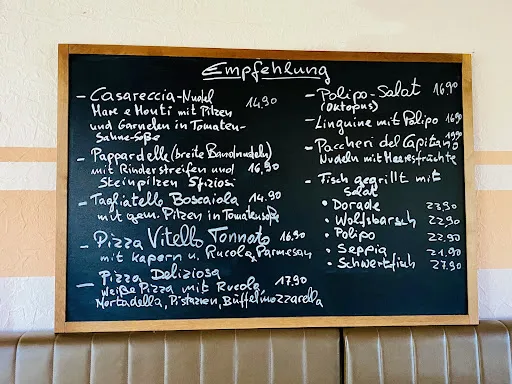 Empfehlung
- Casareccia-Nudel 14,90
Mare e Monti mit Pilzen
und Garnelen in Tomaten-
Sahne-Soße
- Pappardelle (breite Bandnudeln)
mit Rinderstreifen und 16,90
Steinpilzen Sfiziosi
- Tagliatelle Boscaiola 14.90
mit gem. Pilzen in Tomatensoße
- Pizza Vitello Tonnato 16.90
mit Kapern u. Rucola, Parmesan
- Pizza Deliziosa
weiße Pizza mit Rucola, 17.90
Mortadella, Pistazien, Büffelmozzarella
- Polipo-Salat 16,90
(Oktopus)
- Linguine mit Polipo 16,90
- Paccheri del Capitano
Nudeln mit Meeresfrüchte
- Fisch gegrillt mit
Salat
• Dorade 23,90
• Wolfsbarsch 22,90
• Polipo 22,90
• Seppia 21,90
• Schwertfisch 27,90